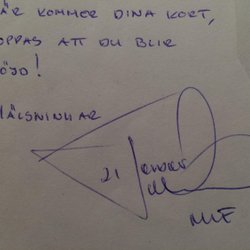 ÄR KOMMER DINA KORT,
OPPAS ATT DU BLIR
ÖJD!
HÄLSNINHAR
21